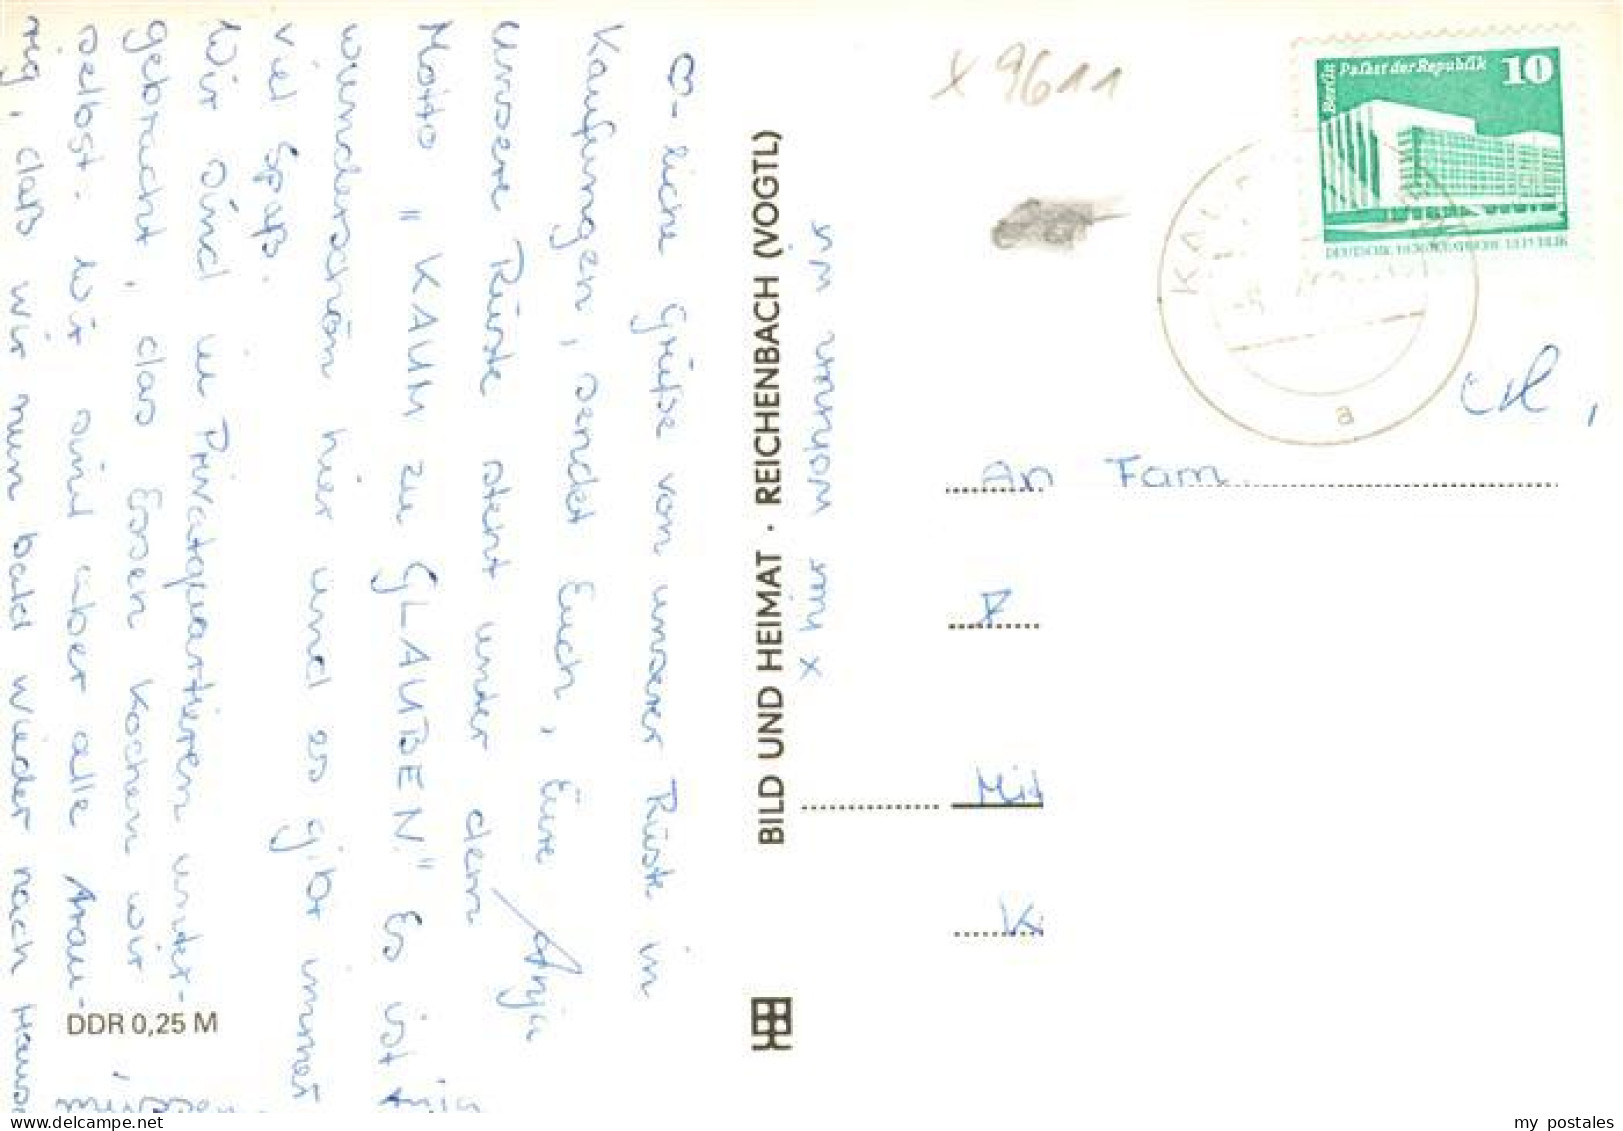 ♡-liche Grüße von unserer Rüste in
Kaufungen, sendet Euch, Eure Anja
Unsere Rüste steht unter dem
Motto "KAUM zu GLAUBEN." Es ist
wunderschön hier und es gibt immer
viel Spaß.
Wir sind in Privatquartieren unter-
gebracht, das Essen kochen wir
selbst. Wir sind aber alle trau-
rig, daß wir nun bald wieder nach Hause
DDR 0,25 M
BILD UND HEIMAT · REICHENBACH (VOGTL)
x hier wohnen wir
x 9611
Berlin Palast der Republik 10
DEUTSCHE DEMOKRATISCHE REPUBLIK
a
An Fam.
Mit
K
my postales